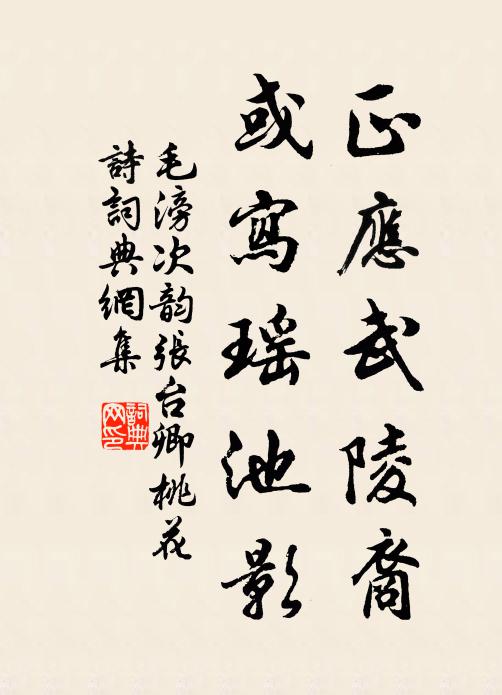 正應武陵裔
或寫瑤池影
毛滂次韵張台卿桃花
詩詞典網集
詞典网印